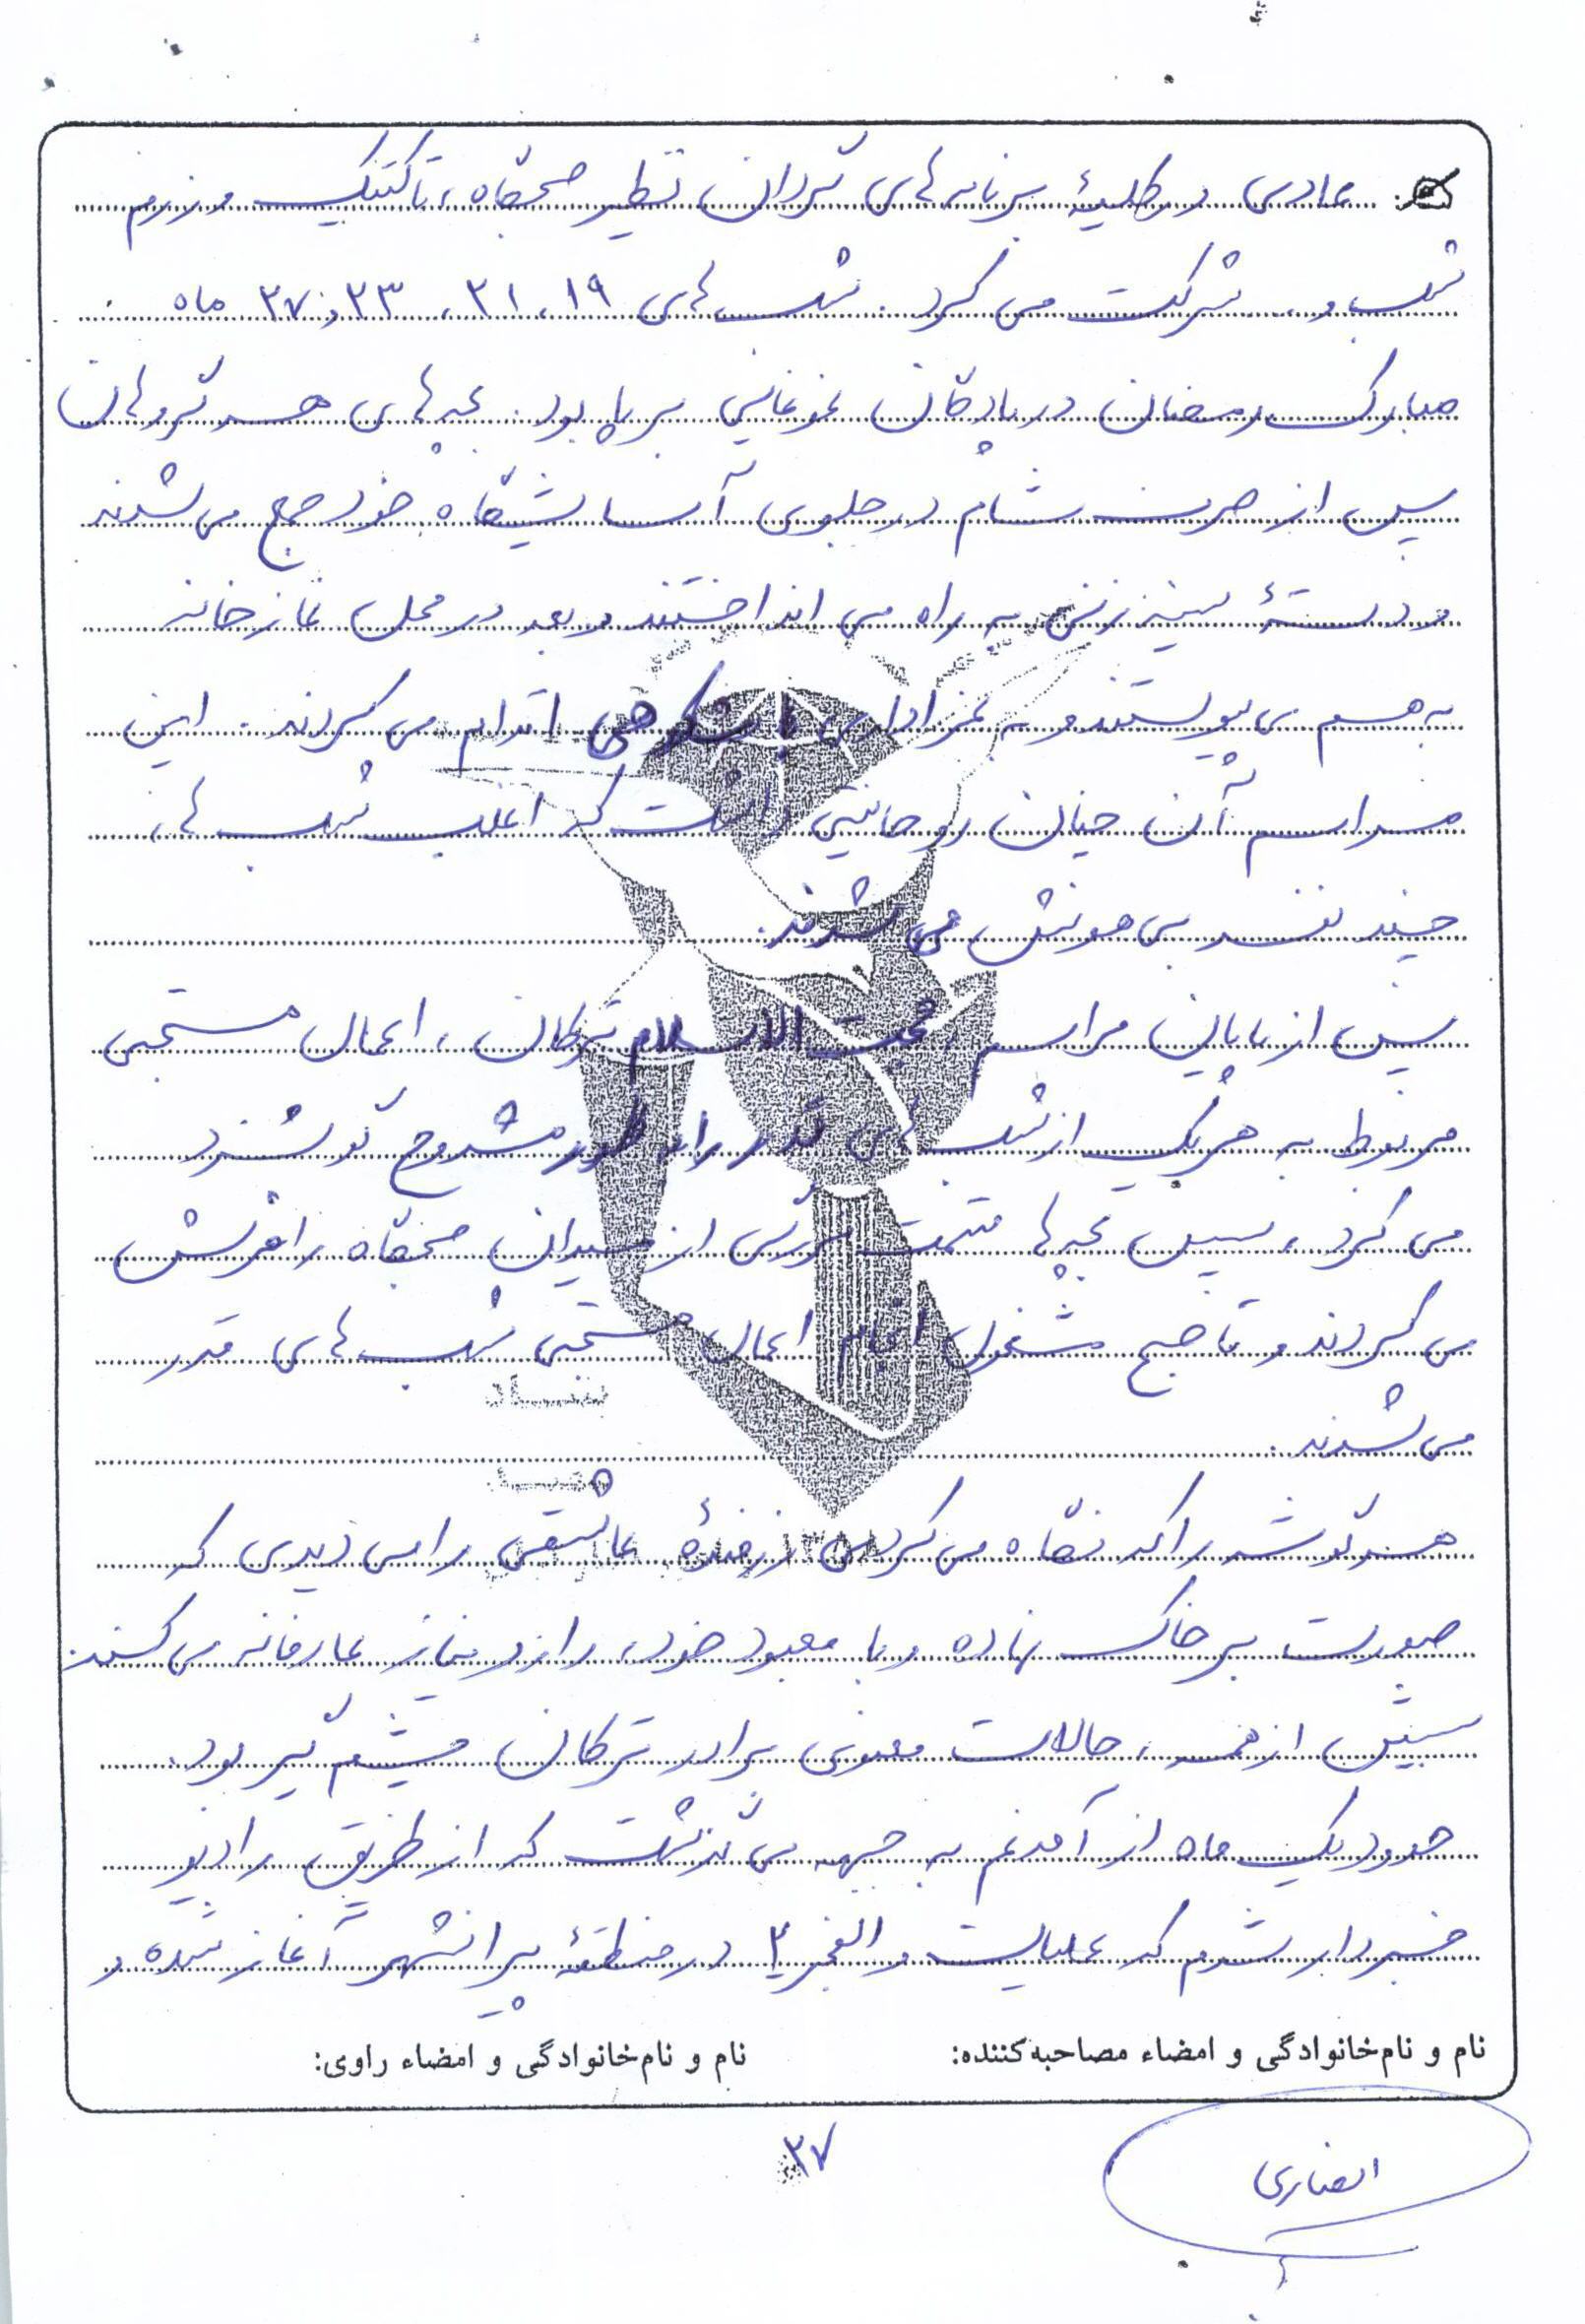 عادی در کلیهٔ برنامه‌های گردان نظیر صبحگاه، تاکتیک و رزم
شب و... شرکت می‌کرد. شب‌های ۱۹، ۲۱، ۲۳ و ۲۷ ماه
مبارک رمضان در پادگان غوغایی برپا بود. بچه‌های هر گروهان
پس از صرف شام در جلوی آسایشگاه خود جمع می‌شدند
و دستهٔ سینه‌زنی به راه می‌انداختند و بعد در محل نمازخانه
به هم می‌پیوستند و به عزاداری باشکوهی اقدام می‌کردند. این
مراسم آن چنان روحانیتی داشت که اغلب شب‌ها،
چند نفر بی‌هوش می‌شدند.
پس از پایان مراسم حجت الاسلام ترکان، اعمال مستحبی
مربوط به هر یک از شب‌های قدر را به طور مشروح گوشزد
می‌کرد، سپس بچه‌ها قسمت بزرگی از میدان صبحگاه را فرش
می‌کردند و تا صبح مشغول انجام اعمال مستحبی شب‌های قدر
می‌شدند.
هر گوشه را که نگاه می‌کردی رزمندهٔ عاشقی را می‌دیدی که
صورت بر خاک نهاده و با معبود خود، راز و نیاز عارفانه می‌کند.
بیش از همه، حالات معنوی برادر ترکان چشم‌گیر بود.
حدود یک ماه از آمدنم به جبهه می‌گذشت که از طریق رادیو
خبردار شدم که عملیات والفجر ۲ در منطقهٔ پیرانشهر آغاز شده و
نام و نام‌خانوادگی و امضاء مصاحبه‌کننده: نام و نام‌خانوادگی و امضاء راوی:
۲۷
انصاری